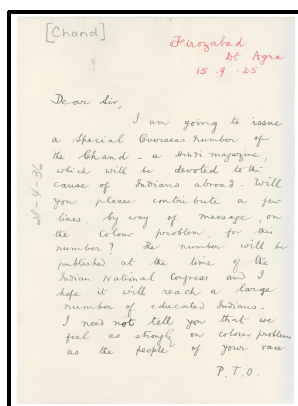 [Chand]
Firozabad
Dt Agra
15.9.25
Dear Sir,
I am going to issue
a Special Overseas number of
the Chand - a Hindi magazine,
which will be devoted to the
cause of Indians abroad. Will
you please contribute a few
lines, by way of message, on
the Colour problem, for this
number? The number will be
published at the time of the
Indian National Congress and I
hope it will reach a large
number of educated Indians.
I need not tell you that we
feel as strongly on colour problem
as the people of your race.
P.T.O.
28-4-36